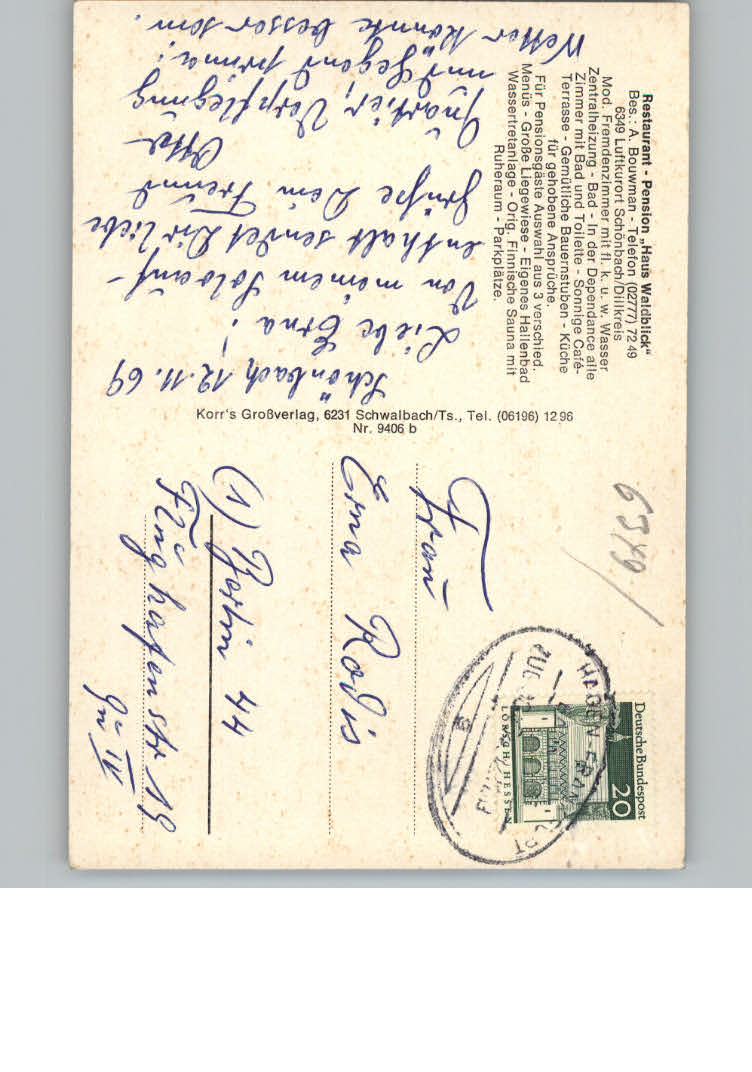 Restaurant - Pension „Haus Waldblick“
Bes.: A. Bouwman - Telefon (02777) 7249
6349 Luftkurort Schönbach/Dillkreis
Mod. Fremdenzimmer mit fl. k. u. w. Wasser
Zentralheizung - Bad - In der Dependance alle
Zimmer mit Bad und Toilette - Sonnige Café-
Terrasse - Gemütliche Bauernstuben - Küche
für gehobene Ansprüche.
Für Pensionsgäste Auswahl aus 3 verschied.
Menüs - Große Liegewiese - Eigenes Hallenbad
Wassertretanlage - Orig. Finnische Sauna mit
Ruheraum - Parkplätze.
Schönbach 12.11.69
Liebe Erna!
Von meinem Soloauf-
enthalt sendet Dir liebe
Grüße Dein Freund
Quartier, Verpflegung
und Gegend prima;
Wetter könnte besser sein.
Korr's Großverlag, 6231 Schwalbach/Ts., Tel. (06196) 1296
Nr. 9406 b
6349
Deutsche Bundespost
20
LORSCH/HESSEN
HAGEN-FRANKFURT
Frau
Erna Rodis
(1) Berlin 44
Flughafenstr 19